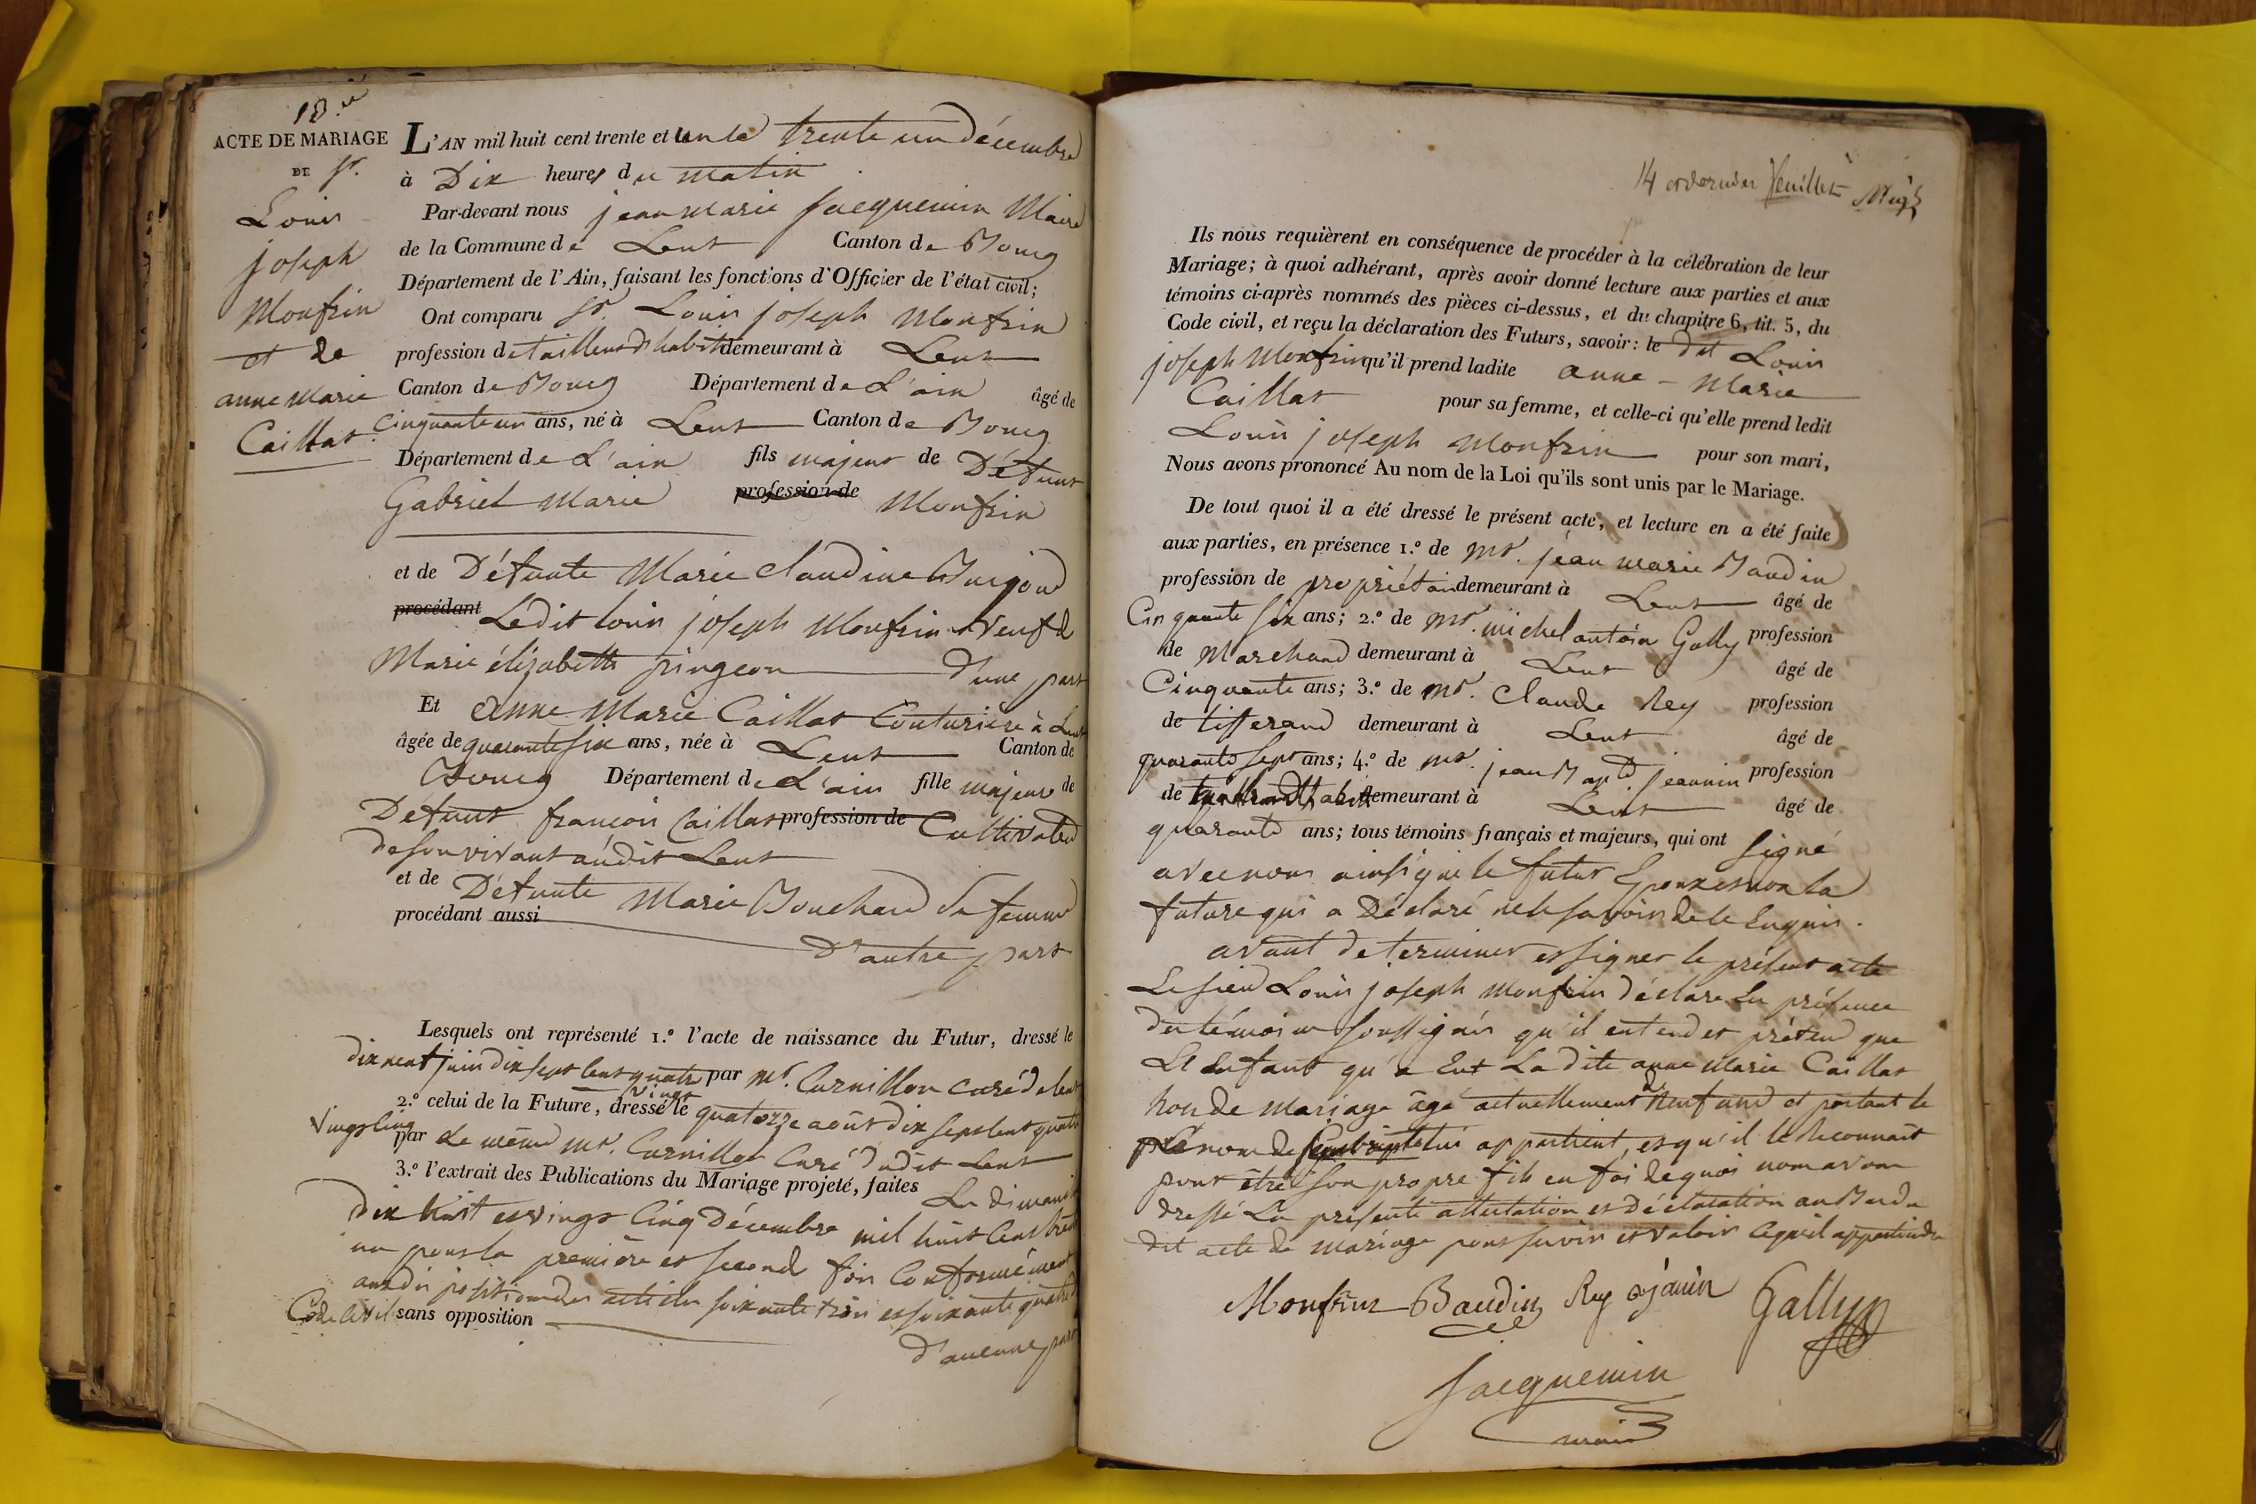 18.e
ACTE DE MARIAGE
DE Sr.
Louis
joseph
Monfrin
et de
anne Marie
Caillat
L'AN mil huit cent trente et un le trente un décembre
à Dix heures du matin
Par-devant nous jean marie Jacquemin Maire
de la Commune de Lent Canton de Bourg
Département de l'Ain, faisant les fonctions d'Officier de l'état civil;
Ont comparu Sr. Louis joseph Monfrin
profession de tailleur d'habits demeurant à Lent
Canton de Bourg Département de L'ain âgé de
Cinquante un ans, né à Lent Canton de Bourg
Département de L'ain fils majeur de Défunt
Gabriel Marie profession de Monfrin
et de Défunte Marie Claudine
procédant Ledit Louis joseph Monfrin veuf de
Marie élizabeth pingeon D'une part
Et Anne Marie Caillat Couturière à Lent
âgée de quarante six ans, née à Lent Canton de
Bourg Département de L'ain fille majeure de
Defunt françois Caillat profession de Cultivateur
de son vivant audit Lent
et de Défunte Marie Bouchard sa femme
procédant aussi
D'autre part
Lesquels ont représenté 1.º l'acte de naissance du Futur, dressé le
dix neuf juin dix sept cent quatre par Mr. Curnillon curé de lent
vingt
2.º celui de la Future, dressé le quatorze août dix sept cent quatre
vingt cinq par Le même Mr. Curnillon Curé dudit Lent
3.º l'extrait des Publications du Mariage projeté, faites Le dimanche
Dix huit et vingt Cinq Décembre mil huit Cent trente
un pour la première et second fois Conformément
aux dispositions des articles soixante trois et soixante quatre
Code Civil sans opposition
D'aucune part
14 et dernier feuillet
Ils nous requièrent en conséquence de procéder à la célébration de leur
Mariage; à quoi adhérant, après avoir donné lecture aux parties et aux
témoins ci-après nommés des pièces ci-dessus, et du chapitre 6, tit. 5, du
Code civil, et reçu la déclaration des Futurs, savoir: le dit Louis
joseph Monfrin qu'il prend ladite anne-Marie
Caillat pour sa femme, et celle-ci qu'elle prend ledit
Louis joseph Monfrin pour son mari,
Nous avons prononcé Au nom de la Loi qu'ils sont unis par le Mariage.
De tout quoi il a été dressé le présent acte, et lecture en a été faite
aux parties, en présence 1.º de Mr. jean marie Baudin
profession de propriétaire demeurant à Lent âgé de
Cinquante six ans; 2.º de Mr. michel antoin Gally profession
de Marchand demeurant à Lent âgé de
Cinquante ans; 3.º de Mr. Claude Rey profession
de tisserand demeurant à Lent âgé de
quarante sept ans; 4.º de Mr. jean Bapte jeannin profession
de demeurant à Lent âgé de
quarante ans; tous témoins français et majeurs, qui ont signé
avec nous ainsi que le futur Epoux et non la
future qui a Déclaré ne le savoir de ce Enquis.
avant de terminer et signer le présent acte
Le sieur Louis joseph Monfrin déclare En présence
des témoins soussignés qu'il entend et prétend que
L'Enfant qu'a Eut La dite anne Marie Caillat
hors de mariage âgé actuellement de neuf ans et portant le
prénom de lui appartient, et qu'il le Reconnait
pour être son propre fils en foi de quoi nous avons
dressé La présente attestation et Déclaration au Bas du
dit acte de mariage pour servir et valoir ce qu'il appartiendra
Monfrin Baudin Rey Gally
Jacquemin
maire